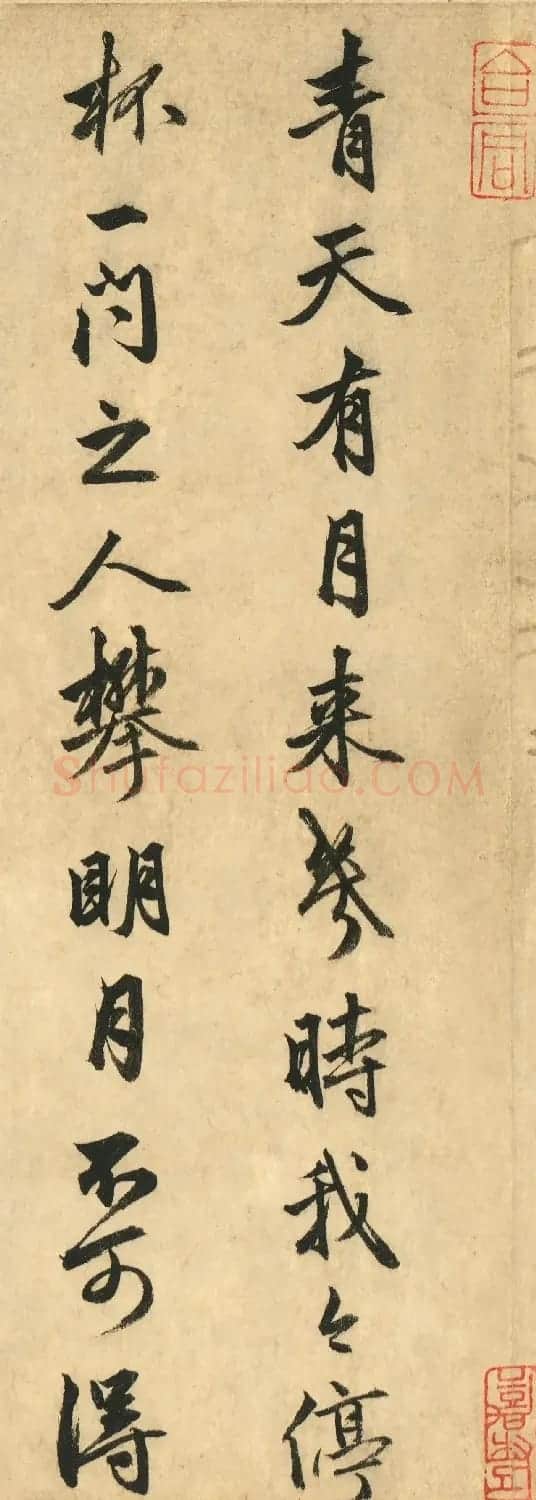 青天有月来幾時我今停
杯一问之人攀明月不可得
ShufaziliaO.COM